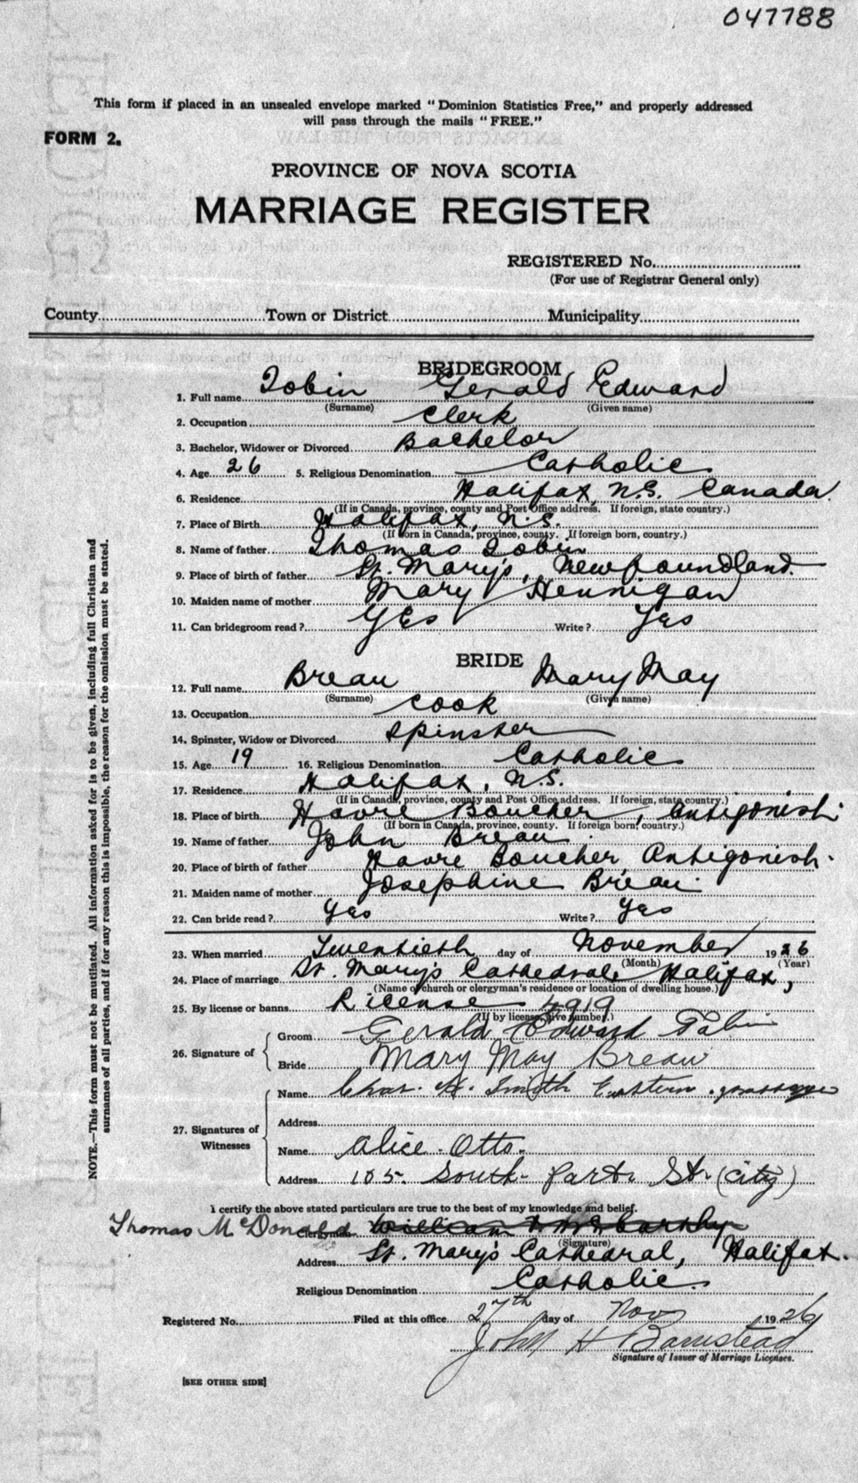 047788
This form if placed in an unsealed envelope marked "Dominion Statistics Free," and properly addressed
will pass through the mails "FREE."
FORM 2.
PROVINCE OF NOVA SCOTIA
MARRIAGE REGISTER
REGISTERED No.
(For use of Registrar General only)
County Town or District Municipality
BRIDEGROOM
1. Full name Tobin Gerald Edward
(Surname) (Given name)
2. Occupation Clerk
3. Bachelor, Widower or Divorced Bachelor
4. Age 26 5. Religious Denomination Catholic
6. Residence Halifax, N.S. Canada.
(If in Canada, province, county and Post Office address. If foreign, state country.)
7. Place of Birth Halifax, N.S.
(If born in Canada, province, county. If foreign born, country.)
8. Name of father Thomas Tobin
9. Place of birth of father St. Mary's, Newfoundland.
10. Maiden name of mother Mary Hennigan
11. Can bridegroom read? Yes Write? Yes
BRIDE
12. Full name Breau Mary May
(Surname) (Given name)
13. Occupation Cook
14. Spinster, Widow or Divorced Spinster
15. Age 19 16. Religious Denomination Catholic
17. Residence Halifax, N.S.
(If in Canada, province, county and Post Office address. If foreign, state country.)
18. Place of birth Havre Boucher, Antigonish
(If born in Canada, province, county. If foreign born, country.)
19. Name of father John Breau
20. Place of birth of father Havre Boucher Antigonish.
21. Maiden name of mother Josephine Breau
22. Can bride read? Yes Write? Yes
23. When married Twentieth day of November 1926
(Month) (Year)
24. Place of marriage St. Mary's Cathedral, Halifax,
(Name of church or clergyman's residence or location of dwelling house.)
25. By license or banns License 4919
(If by license, give number.)
26. Signature of Groom Gerald Edward Tobin
Bride Mary May Breau
27. Signatures of Witnesses Name Chas. H. Smith Eastern Passage
Address
Name Alice Otto.
Address 105 South Park St. (City)
I certify the above stated particulars are true to the best of my knowledge and belief.
Thomas McDonald Clergyman
(Signature)
Address St. Mary's Cathedral, Halifax.
Religious Denomination Catholic.
Registered No. Filed at this office 27th day of Nov 1926
John H Barnstead
Signature of Issuer of Marriage Licenses.
[SEE OTHER SIDE]
NOTE.—This form must not be mutilated. All information asked for is to be given, including full Christian and
surnames of all parties, and if for any reason this is impossible, the reason for the omission must be stated.